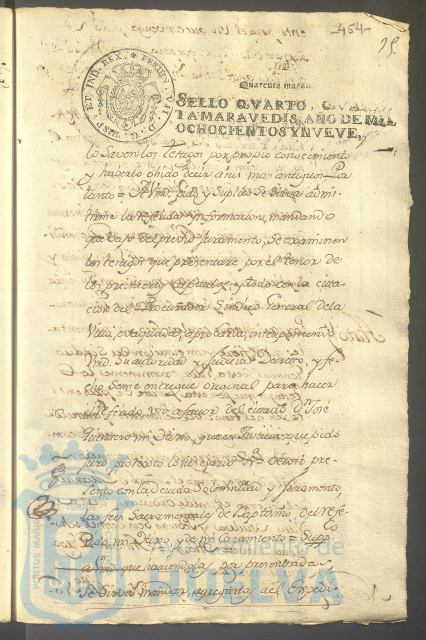 -454-
HISP. ET IND. REX. FERDIN. VII. D. G.
Quarenta marav.
SELLO QVARTO, QVAREN
TAMARAVEDIS, AÑO DE MIL
OCHOCIENTOS Y NVEVE.
lo Saven los testigos por propio conocimiento
y haverlo ohido decir a sus mas antiguos = Por
tanto = A Vmd. pido y Suplico se sirva admi-
tirme la referida informacion, mandando
que bajo del previo juramento, se examinen
los testigos que presentare por el tenor de
los primeros Capitulos, y todo con la cita-
cion del Procurador Sindico General de la
Villa, evaquada, aprobarla, interponiendo
Vmd. Su autoridad y Judicial Decreto, y fe-
cho Seme entregue original para hacer
el referido uso a favor del citado Dn. José
mi que es Justicia que pido
juro, protexto lo necesario
sento con la devida Solemnidad y Juramento,
las fees Sacramentales de Baptismo del refe-
rido mi y de mi Casamiento = Supco.
a Vmd. que haviendola por presentada
Se Sirva mandar, agregarla al Expedi-
Ayuntamiento de
HUELVA